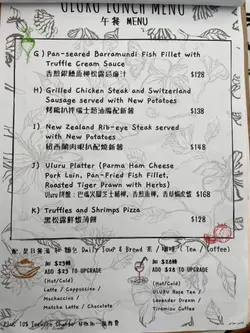 ULURU LUNCH MENU
午餐 MENU
G) Pan-seared Barramundi Fish Fillet with
Truffle Cream Sauce
香煎銀鱸魚柳松露忌廉汁 $128
H) Grilled Chicken Steak and Switzerland
Sausage served with New Potatoes
烤雞扒拼瑞士腸配新薯 $138
I) New Zealand Rib-eye Steak served
with New Potatoes
紐西蘭肉眼扒配燒新薯 $148
J) Uluru Platter (Parma Ham Cheese
Pork Loin, Pan-Fried Fish Fillet,
Roasted Tiger Prawn with Herbs)
Uluru拼盤: 巴馬火腿芝士豬柳, 香煎魚柳, 香草焗虎蝦 $168
K) Truffles and Shrimps Pizza
黑松露鮮蝦薄餅 $128
Daily Soup & Bread Tea / Coffee)
加 $25轉 加 $28轉
ADD $25 TO UPGRADE ADD $28 TO UPGRADE
(Hot/Cold) (Hot/Cold)
Latte / Cappuccino / ULURU Rose Tea /
Mochaccino / Lavender Dream /
Matcha Latte / Chocolate Tiramisu Coffee
10% Service Charge